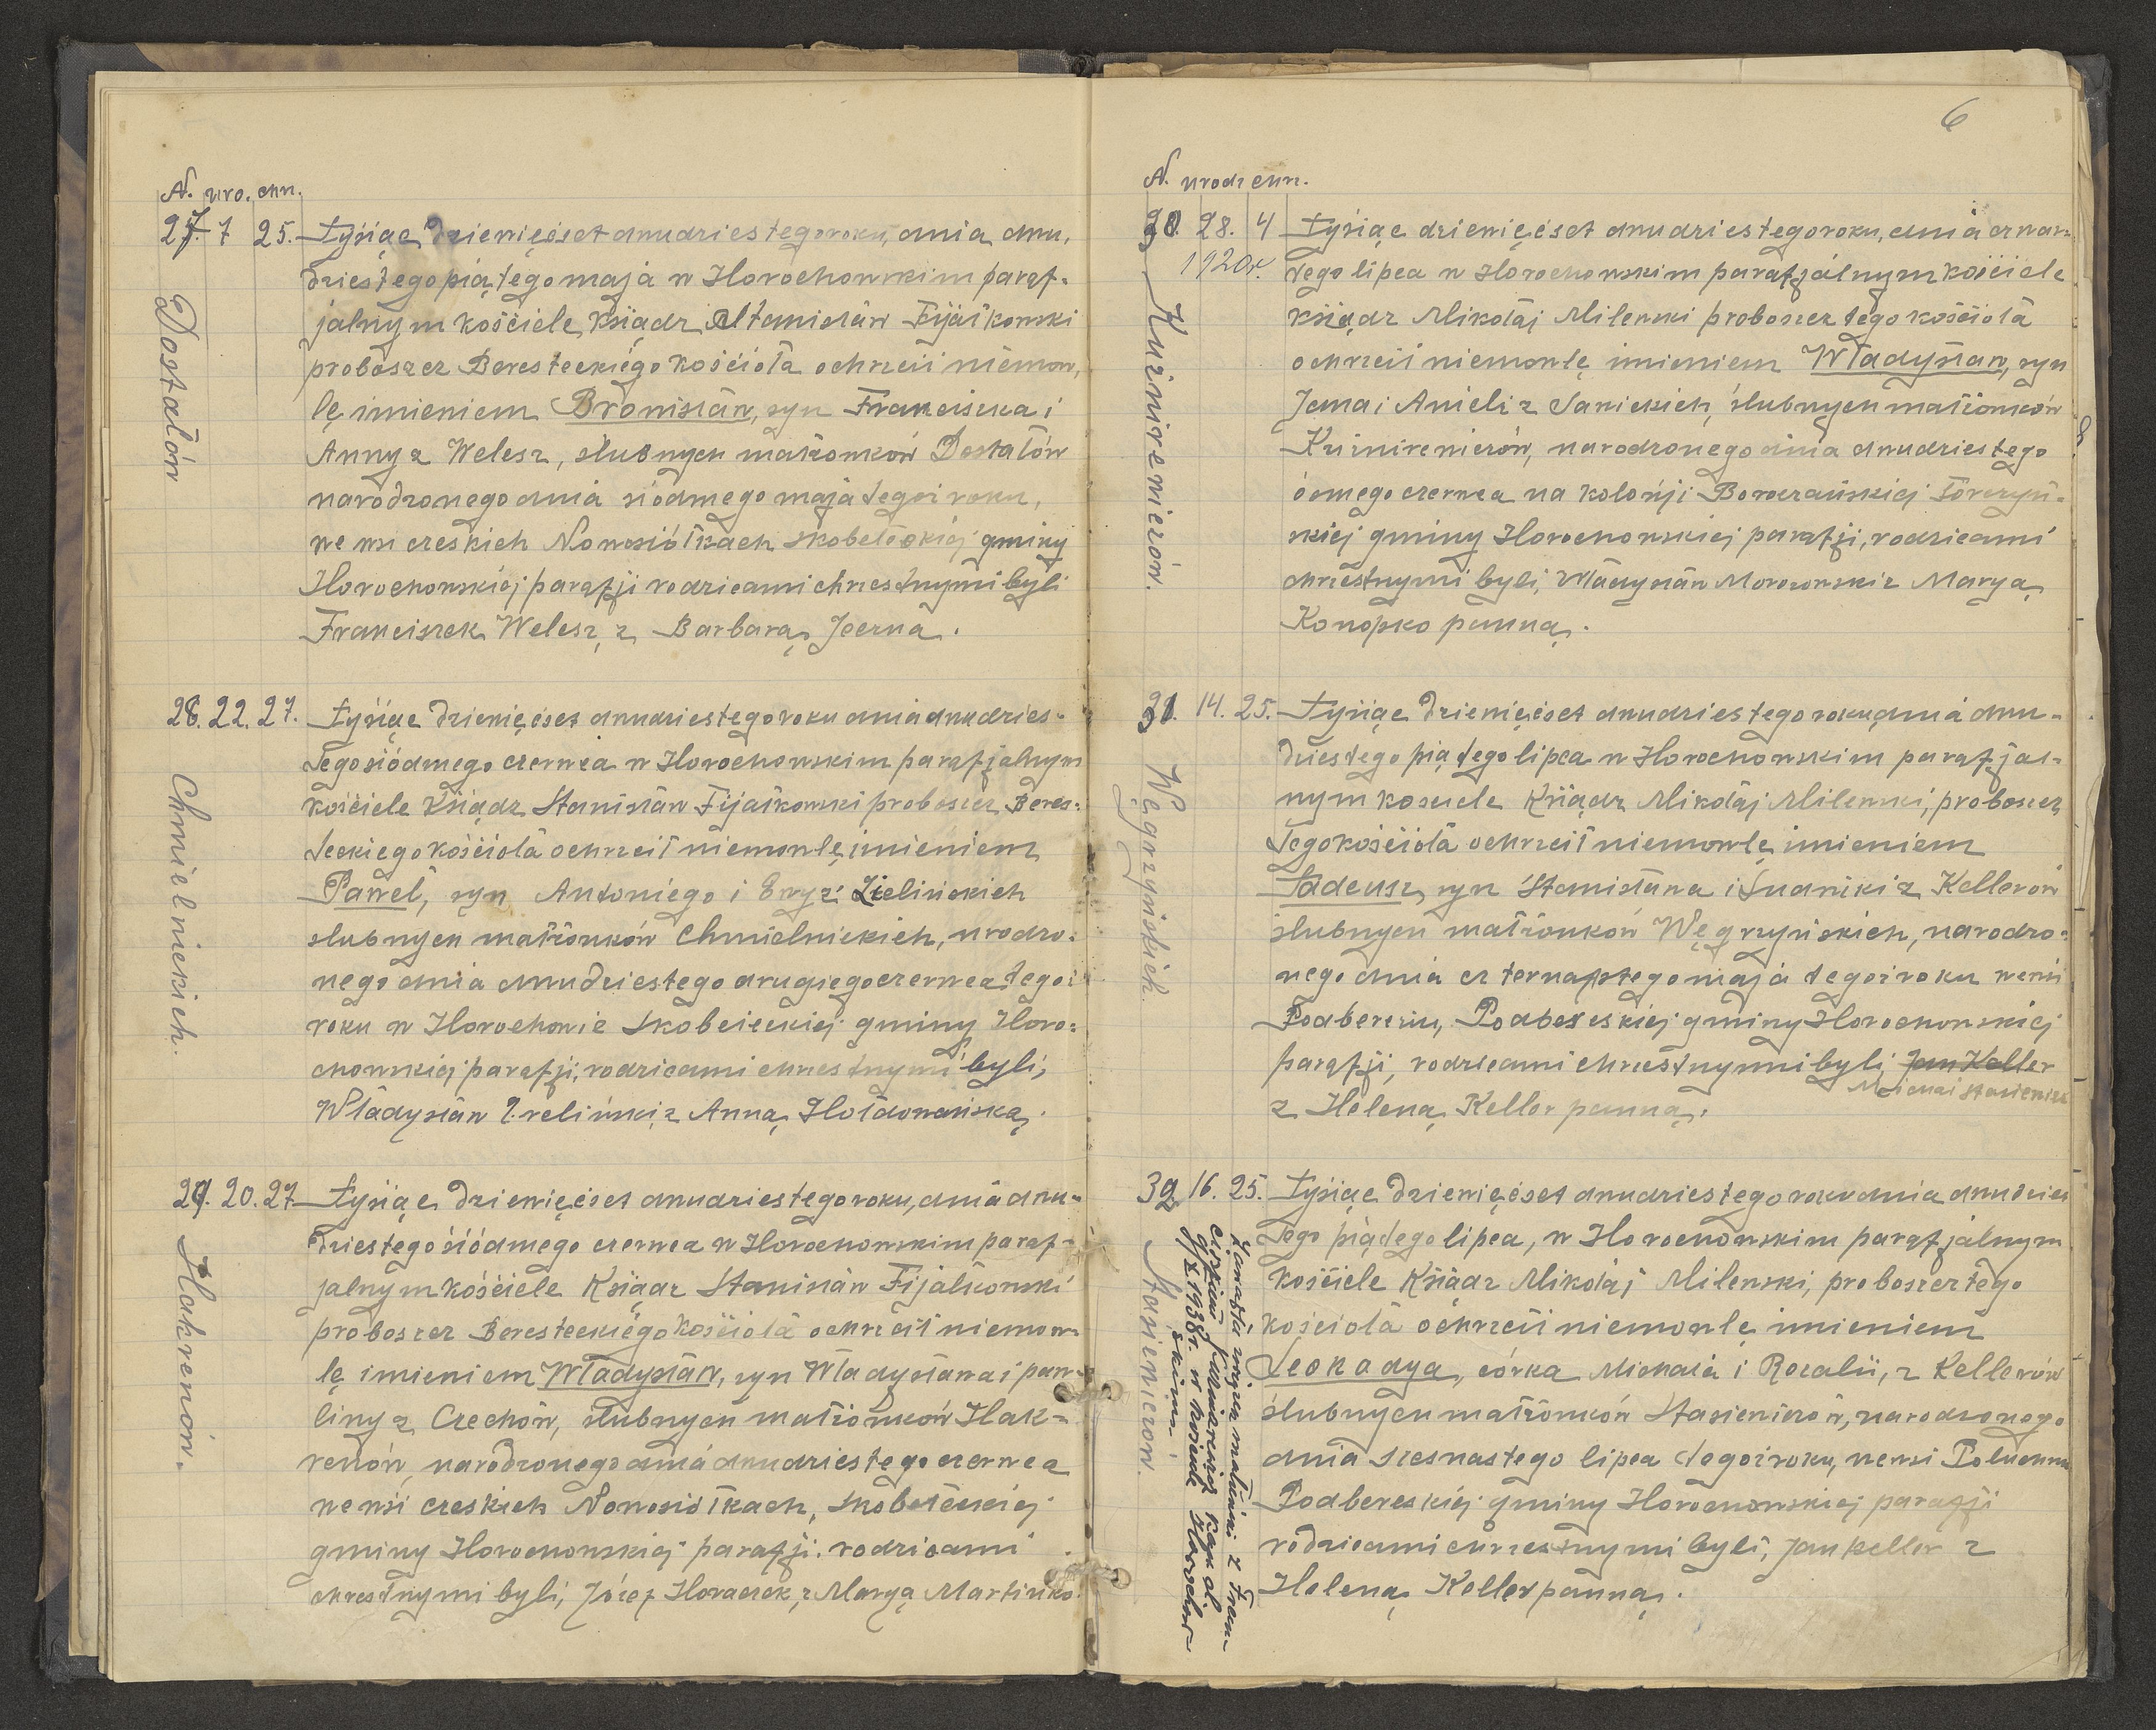 N. uro. chr.
27. 7 25. Tysiąc dziewięćset dwudziestego roku, dnia dwu,
dziestego piątego maja w Horochowskim paraf-
jalnym kościele, ksiądz Stanisław Fijałkowski
proboszcz Beresteckiego kościoła ochrzcił niemow,
lę imieniem Bronisław, syn Franciszka i
Anny z Welesz, ślubnych małżonków Dostałów
narodzonego dnia siódmego maja tegoż roku,
we wsi czeskich Nowosiółkach skobełeckiej gminy
Horochowskiej parafji rodzicami chrzestnymi byli
Franciszek Welesz, z Barbarą Jeerna.
Dostałów
28. 22. 27. Tysiąc dziewięćset dwudziestego roku dnia dwudzies-
tego siódmego czerwca w Horochowskim parafjalnym
kościele ksiądz Stanisław Fijałkowski proboszcz Beres-
teckiego kościoła ochrzcił niemowlę imieniem
Paweł, syn Antoniego i Ewy z Zielińskich
ślubnych małżonków Chmielnickich, urodzo-
nego dnia dwudziestego drugiego czerwca tegoż
roku w Horochowie Skobeleckiej gminy Horo-
chowskiej parafji, rodzicami chrzestnymi byli,
Władysław Zieliński, z Anną Hołdowańską.
Chmielnickich.
29. 20. 27 Tysiąc dziewięćset dwudziestego roku, dnia dwu-
dziestego siódmego czerwca w Horochowskim paraf-
jalnym kościele Ksiądz Stanisław Fijałkowski
proboszcz Beresteckiego kościoła ochrzcił niemow-
lę imieniem Władysław, syn Władysława i paw-
liny z Czechów, ślubnych małżonków Hak-
renów, narodzonego dnia dwudziestego czerwca
we wsi czeskich Nowosiółkach, Skobełeckiej
gminy Horochowskiej parafji. rodzicami
chrzestnymi byli, Józef Horaczek, z Maryą Martinko.
Hakrenów.
6
N. urodz chrz.
30. 28. 4 Tysiąc dziewięćset dwudziestego roku, dnia czwar-
1920r. tego lipca w Horochowskim parafjalnym kościele
ksiądz Mikołaj Milewski proboszcz tego kościoła
ochrzcił niemowlę imieniem Władysław, syn
Jana i Anieli z Sanickich, ślubnych małżonków
Kuźnirewiczów, narodzonego dnia dwudziestego
ósmego czerwca na kolonji Borozańskiej Torczyń-
skiej gminy Horochowskiej parafji, rodzicami
chrzestnymi byli, Władysław Morozowski z Maryą
Konopko panną.
Kuźnirewiczów.
31. 14. 25. Tysiąc dziewięćset dwudziestego roku dnia dwu-
dziestego piątego lipca w Horochowskim parafjal-
nym kościele Ksiądz Mikołaj Milewski, proboszcz,
tego kościoła ochrzcił niemowlę imieniem
Tadeusz, syn Stanisława i Ludwiki z Kellerów
ślubnych małżonków Węgrzyńskich, narodzo-
nego dnia czternastego maja tegoż roku we wsi
Podbereziu, Podbereskiej gminy Horochowskiej
parafji, rodzicami chrzestnymi byli, Jan Keller
Michał Stasiewicz
z Heleną Keller panną.
Węgrzyńskich.
32 16. 25. Tysiąc dziewięćset dwudziestego roku dnia dwudzies
tego piątego lipca, w Horochowskim parafjalnym
kościele Ksiądz Mikołaj Milewski, proboszcz tego
kościoła ochrzcił niemowlę imieniem
Leokadya, córka Michała i Rozalii, z Kellerów
ślubnych małżonków Stasiewiczów, narodzonego
dnia szesnastego lipca tegoż roku, we wsi Poluchno
Podbereskiej gminy Horochowskiej parafji
rodzicami chrzestnymi byli, Jan Keller z
Heleną Keller panną.
Stasiewiczów.
Zawarła związek małżeński z Fran-
ciszkiem
1938r. w kościele Horochow-
skim